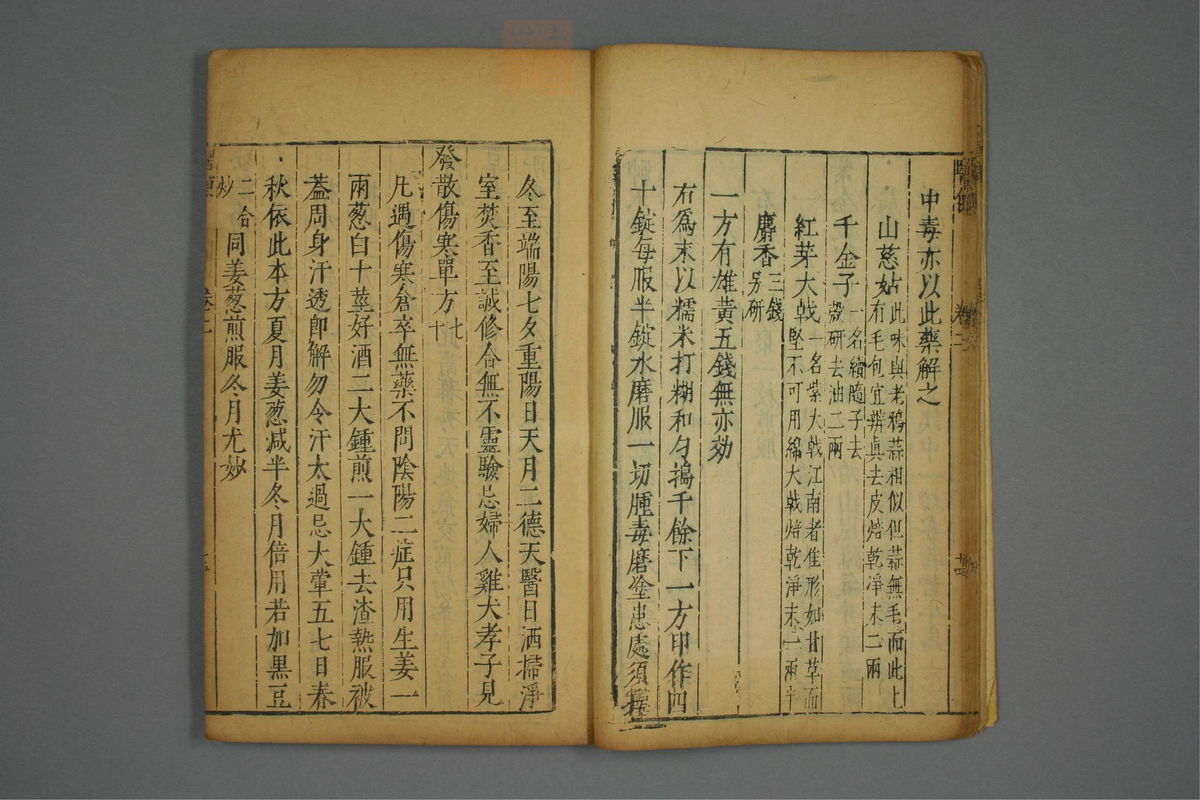 中毒亦以此藥解之
山慈姑此味與老鴉蒜相似但蒜無毛而此上
有毛包宜辨真去皮焙乾淨末二兩
千金子一名續隨子去
殼研去油二兩
紅芽大戟一名紫大戟江南者佳形如甘草而
堅不可用綿大戟焙乾淨末一兩半
麝香三錢
另研
一方有雄黃五錢無亦効
右為末以糯米打糊和勻搗千餘下一方印作四
十錠每服半錠水磨服一切腫毒磨塗患處須擇
冬至端陽七夕重陽日天月二德天醫日洒掃淨
室焚香至誠修合無不靈驗忌婦人雞犬孝子見
發散傷寒單方七
十
凡遇傷寒倉卒無藥不問陰陽二症只用生姜一
兩葱白十莖好酒二大鍾煎一大鍾去渣熱服被
蓋周身汗透即解勿令汗太過忌大葷五七日春
秋依此本方夏月姜葱減半冬月倍用若加黑豆
二合
炒同姜葱煎服冬月尤妙